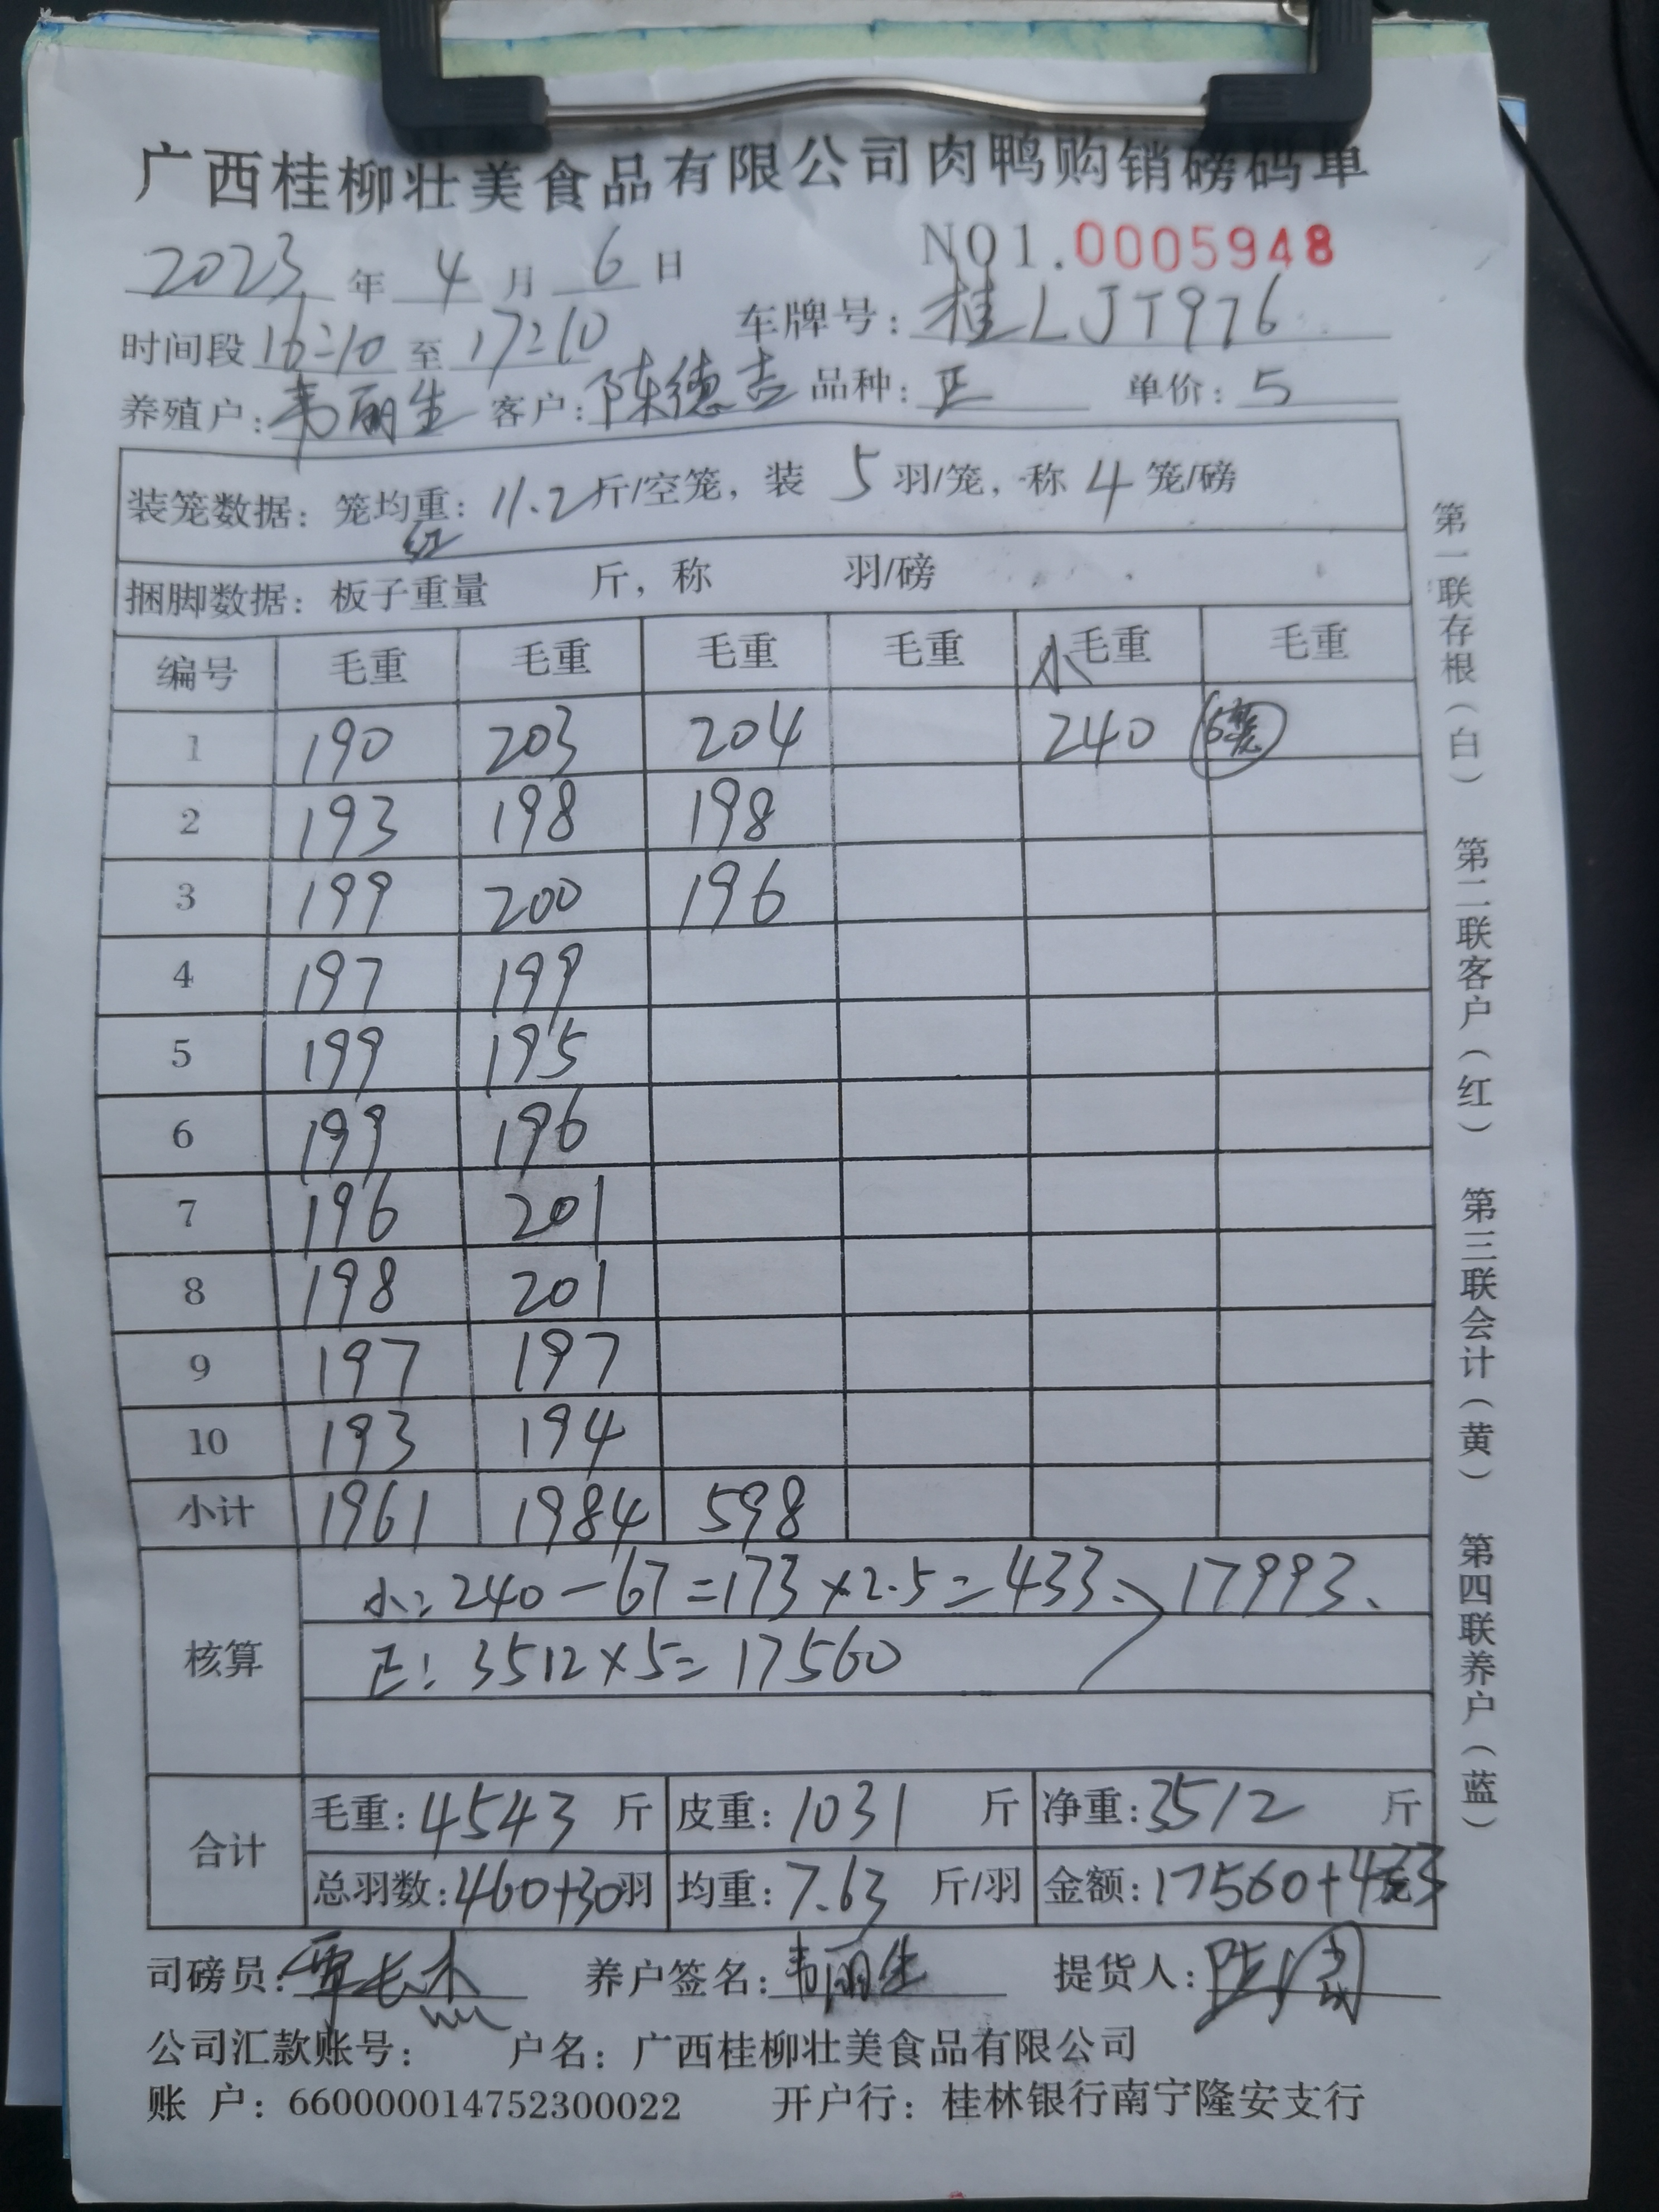 广西桂柳壮美食品有限公司肉鸭购销磅码单
NO1.0005948
2023 年 4 月 6 日
时间段 16:10 至 17:10 车牌号: 桂LJT976
养殖户: 韦丽生 客户: 陈德吉 品种: 正 单价: 5
装笼数据: 笼均重: 11.2 斤/空笼, 装 5 羽/笼, 称 4 笼/磅
红
捆脚数据: 板子重量 斤, 称 羽/磅
编号 毛重 毛重 毛重 毛重 小 毛重 毛重
1 190 203 204 240 6笼
2 193 198 198
3 199 200 196
4 197 199
5 199 195
6 199 196
7 196 201
8 198 201
9 197 197
10 193 194
小计 1961 1984 598
核算 小: 240-67=173×2.5=433 17993
正: 3512×5=17560
合计 毛重: 4543 斤 皮重: 1031 斤 净重: 3512 斤
总羽数: 460+30 羽 均重: 7.63 斤/羽 金额: 17560+433
司磅员: 养户签名: 韦丽生 提货人:
公司汇款账号: 户名: 广西桂柳壮美食品有限公司
账 户: 660000014752300022 开户行: 桂林银行南宁隆安支行
第一联存根(白) 第二联客户(红) 第三联会计(黄) 第四联养户(蓝)